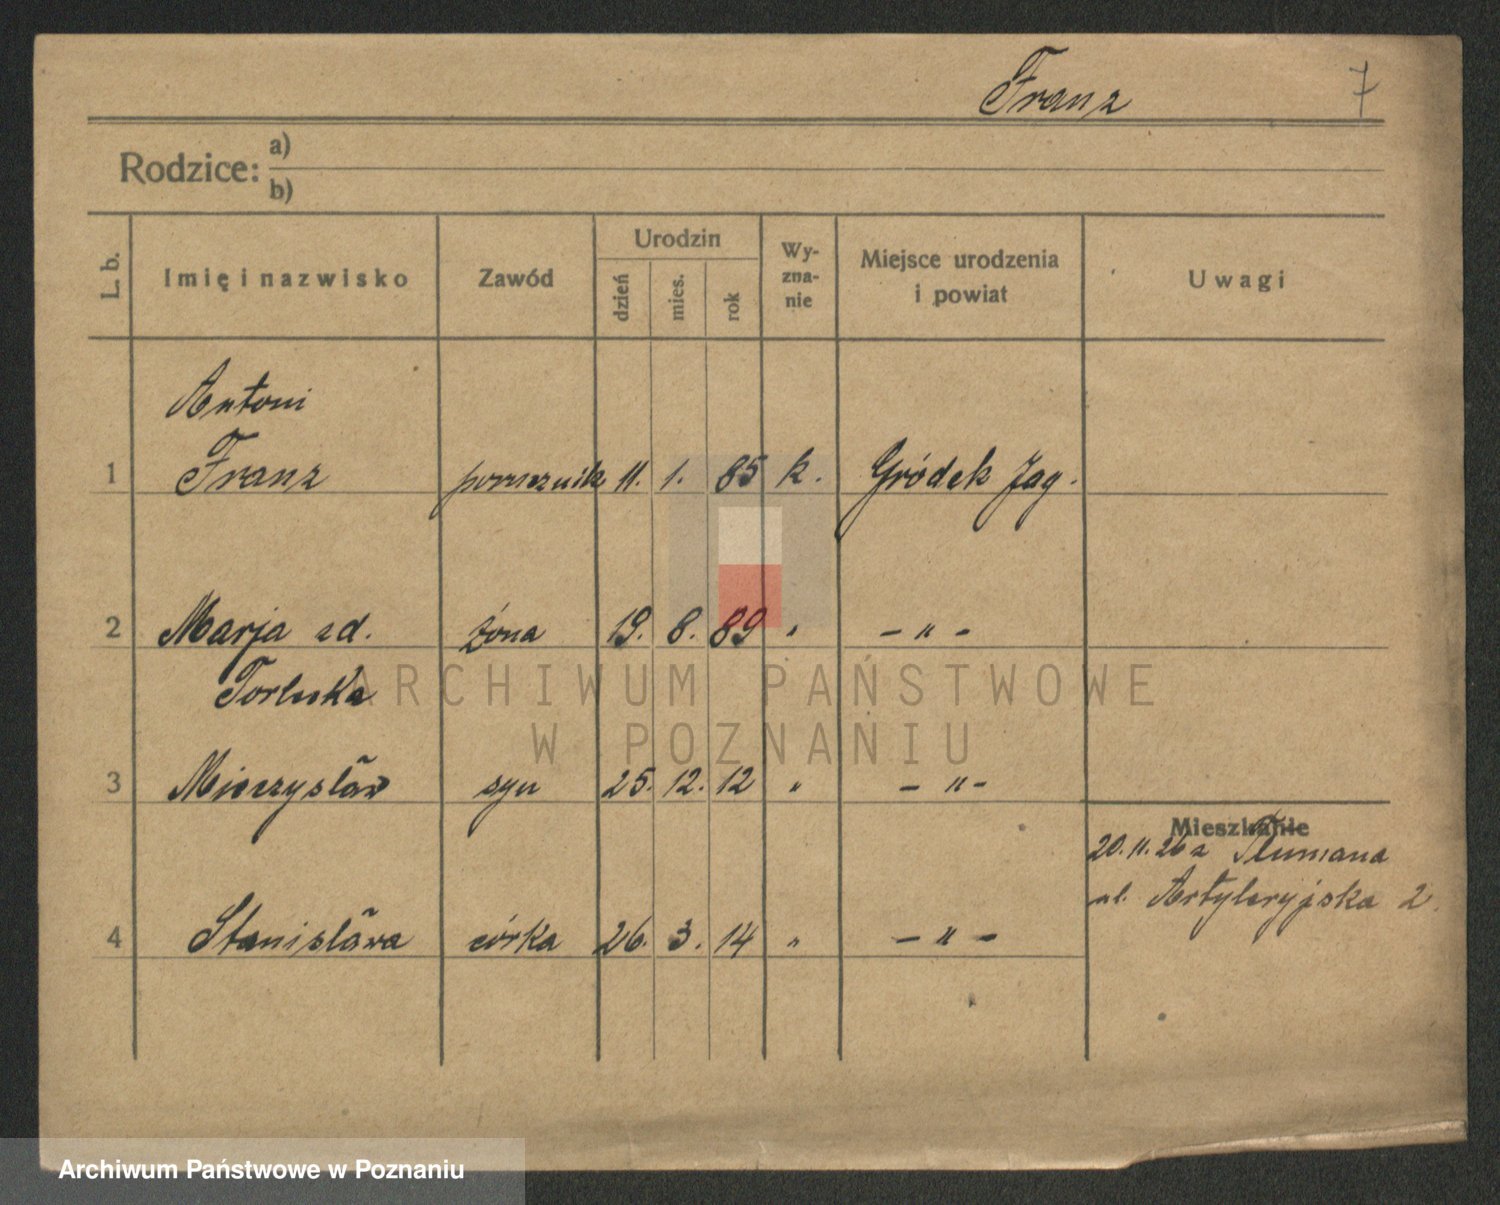 Franz 7
Rodzice: a)
b)
L. b. Imię i nazwisko Zawód Urodzin dzień mies. rok Wy-zna-nie Miejsce urodzenia i powiat Uwagi
Antoni
1 Franz porucznik 11. 1. 85 k. Gródek Jag.
2 Marja zd. żona 19. 8. 89 " - " -
Torluska
ARCHIWUM PAŃSTWOWE
W POZNANIU
3 Mieczysław syn 25. 12. 12 " - " -
Mieszkanie
20. 11. 26 z Tłumana
ul. Artyleryjska 2.
4 Stanisława córka 26. 3. 14 " - " -
Archiwum Państwowe w Poznaniu